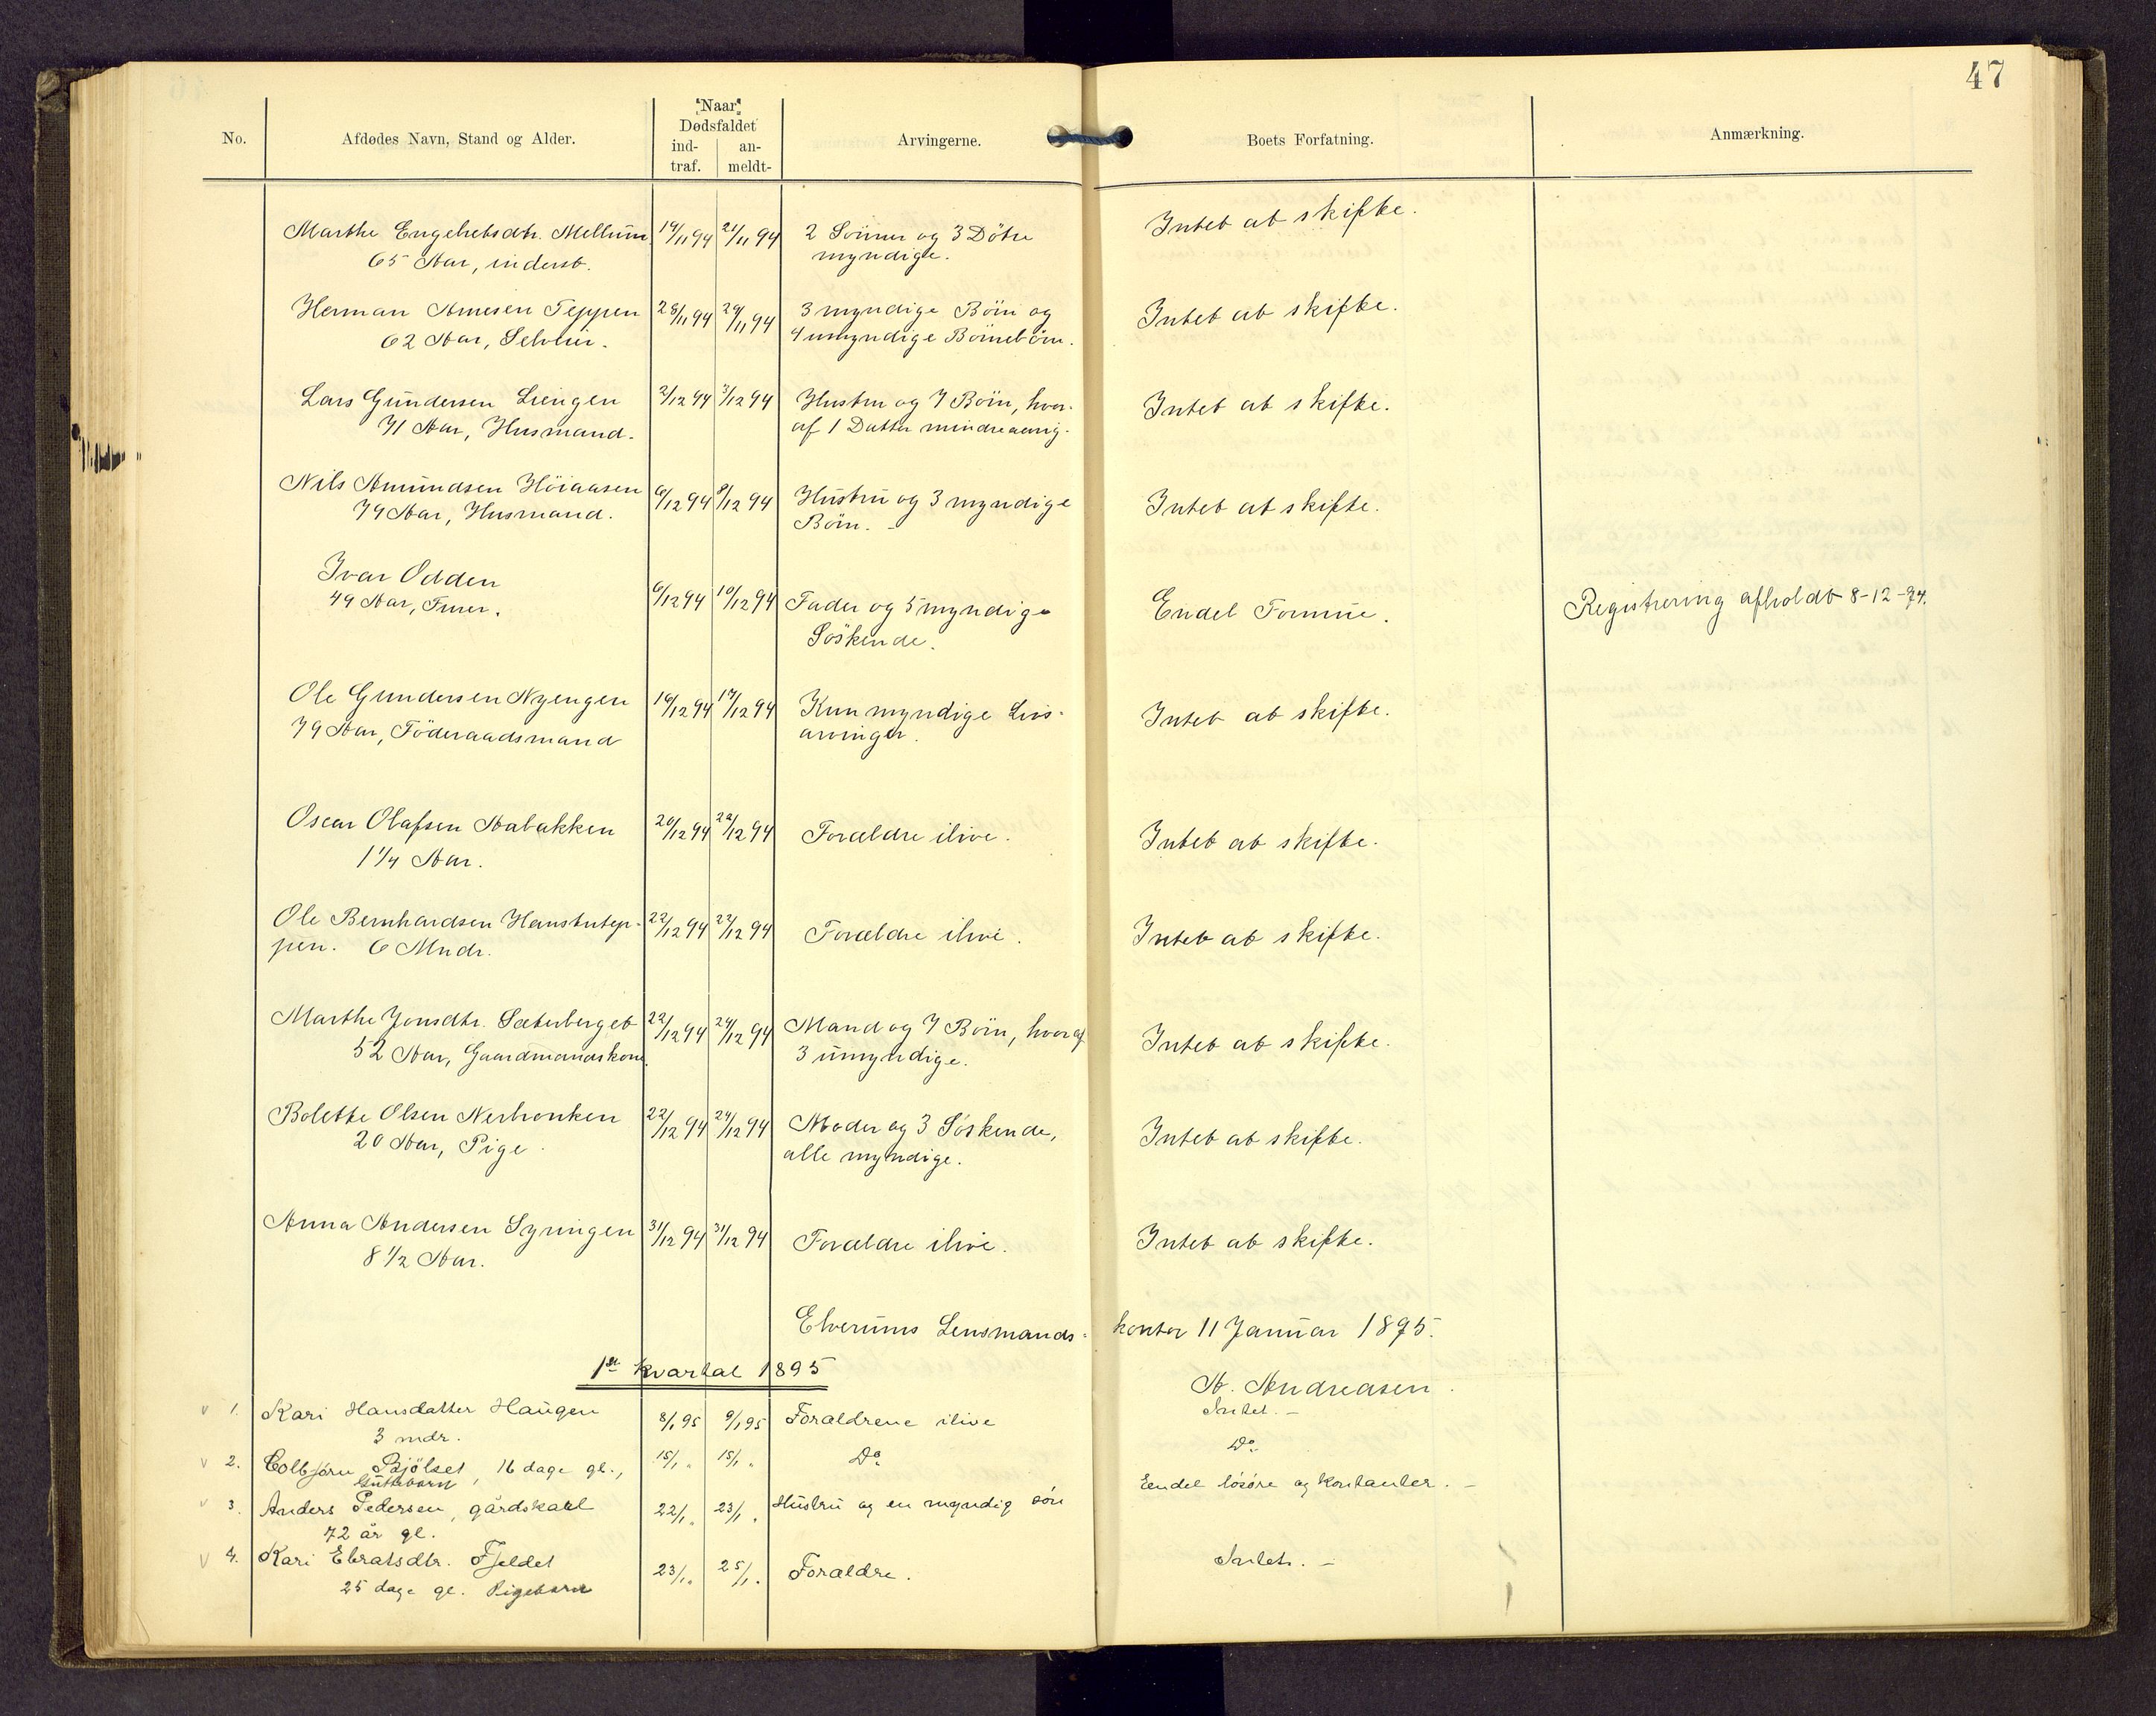 47
No. Afdødes Navn, Stand og Alder. "Naar" Dødsfaldet ind-traf. an-meldt- Arvingerne. Boets Forfatning. Anmærkning.
Marthe Engebretsdtr. Mellum 19/11 94 21/11 94 2 Sönner og 3 Dötre Intet at skifte.
65 Aar, inderst. myndige.
Herman Arnesen Teppen 28/11 94 29/11 94 3 myndige Börn og Intet at skifte.
62 Aar, Selveier. 4 umyndige Börnebörn.
Lars Gundersen Liengen 2/12 94 3/12 94 Hustru og 7 Börn, hvor- Intet at skifte.
71 Aar, Husmand. af 1 Datter mindreaarig.
Nils Amundsen Höiaasen 6/12 94 8/12 94 Hustru og 3 myndige Intet at skifte.
79 Aar, Husmand. Börn. -
Ivar Odden 6/12 94 10/12 94 Fader og 5 myndige Endel Formue. Registrering afholdt 8-12-94.
49 Aar, Furer. Söskende.
Ole Gundersen Nyengen 16/12 94 17/12 94 Kun myndige Livs- Intet at skifte.
79 Aar, Föderaadsmand arvinger.
Oscar Olafsen Aabakken 20/12 94 22/12 94 Forældre ilive. Intet at skifte.
1 1/4 Aar.
Ole Bernhardsen Hanstutep- 22/12 94 22/12 94 Forældre ilive. Intet at skifte.
pen. 6 Mndr.
Marthe Jonsdtr. Sæterberget 22/12 94 24/12 94 Mand og 7 Börn, hvoraf Intet at skifte.
52 Aar, Gaardmandskone. 3 umyndige.
Bolette Olsen 22/12 94 24/12 94 Moder og 3 Söskende, Intet at skifte.
20 Aar, Pige. alle myndige.
Anna Andersen Syringen 31/12 94 31/12 94 Forældre ilive. Intet at skifte.
8 1/2 Aar.
Elverums Lensmands- kontor 11 Januar 1895.
A. Andreasen.
1ste kvartal 1895
1. Kari Hansdatter Haugen 8/1 95 9/1 95 Forældrene ilive Intet. -
3 mdr.
2. Colbjörn Bjölset, 16 dage gl., 15/1 " 15/1 " Do. Do.
Guttebarn
3. Anders Pedersen, gårdskarl 22/1 " 23/1 " Hustru og en myndig sön Endel lösöre og kontanter. -
72 år gl.
4. Kari Ebratsdtr. Fjeldet 23/1 " 25/1 " Forældre. Intet. -
25 dage gl. Pigebarn